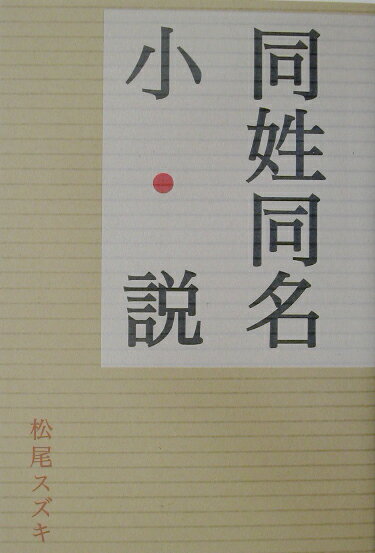 同姓同名
小・説
松尾スズキ